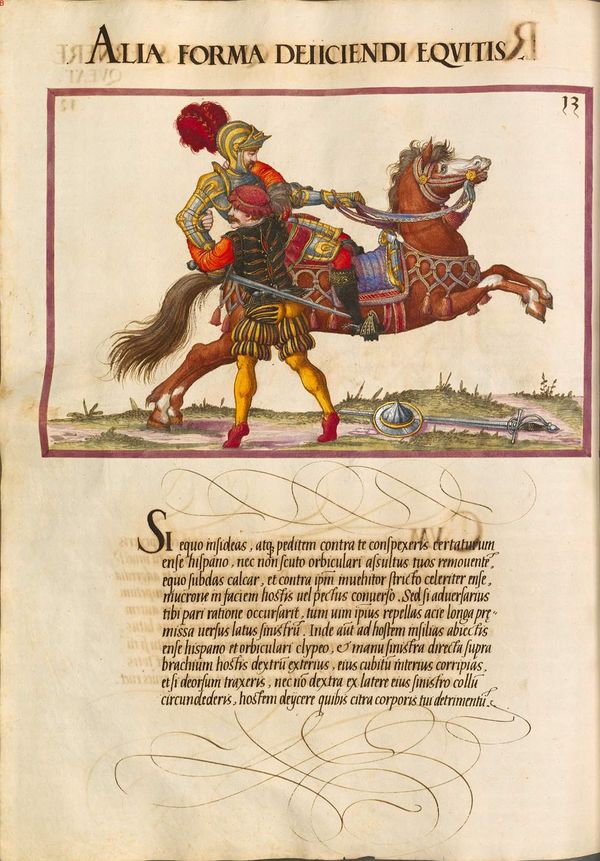 ALIA FORMA DEIICIENDI EQVITIS
13
Si equo insideas, atq; peditem contra te conspexeris certaturum
ense hispano, nec non scuto orbiculari assultus tuos remouente,
equo subdas calcar, et contra ipm inuehitor stricto celeriter ense,
mucrone in faciem hostis uel pectus conuerso. Sed si aduersarius
tibi pari ratione occursarit, tum uim ipius repellas acie longa prę-
missa uersus latus sinistrũ. Inde aut ad hostem insilias abiectis
ense hispano et orbiculari clypeo, & manu sinistra directa supra
brachium hostis dextrũ exterius, eius cubitũ interius corripias,
et si deorsum traxeris, nec nõ dextra ex latere eius sinistro collũ
circundederis, hostem deijcere quibis citra corporis tui detrimentũ.